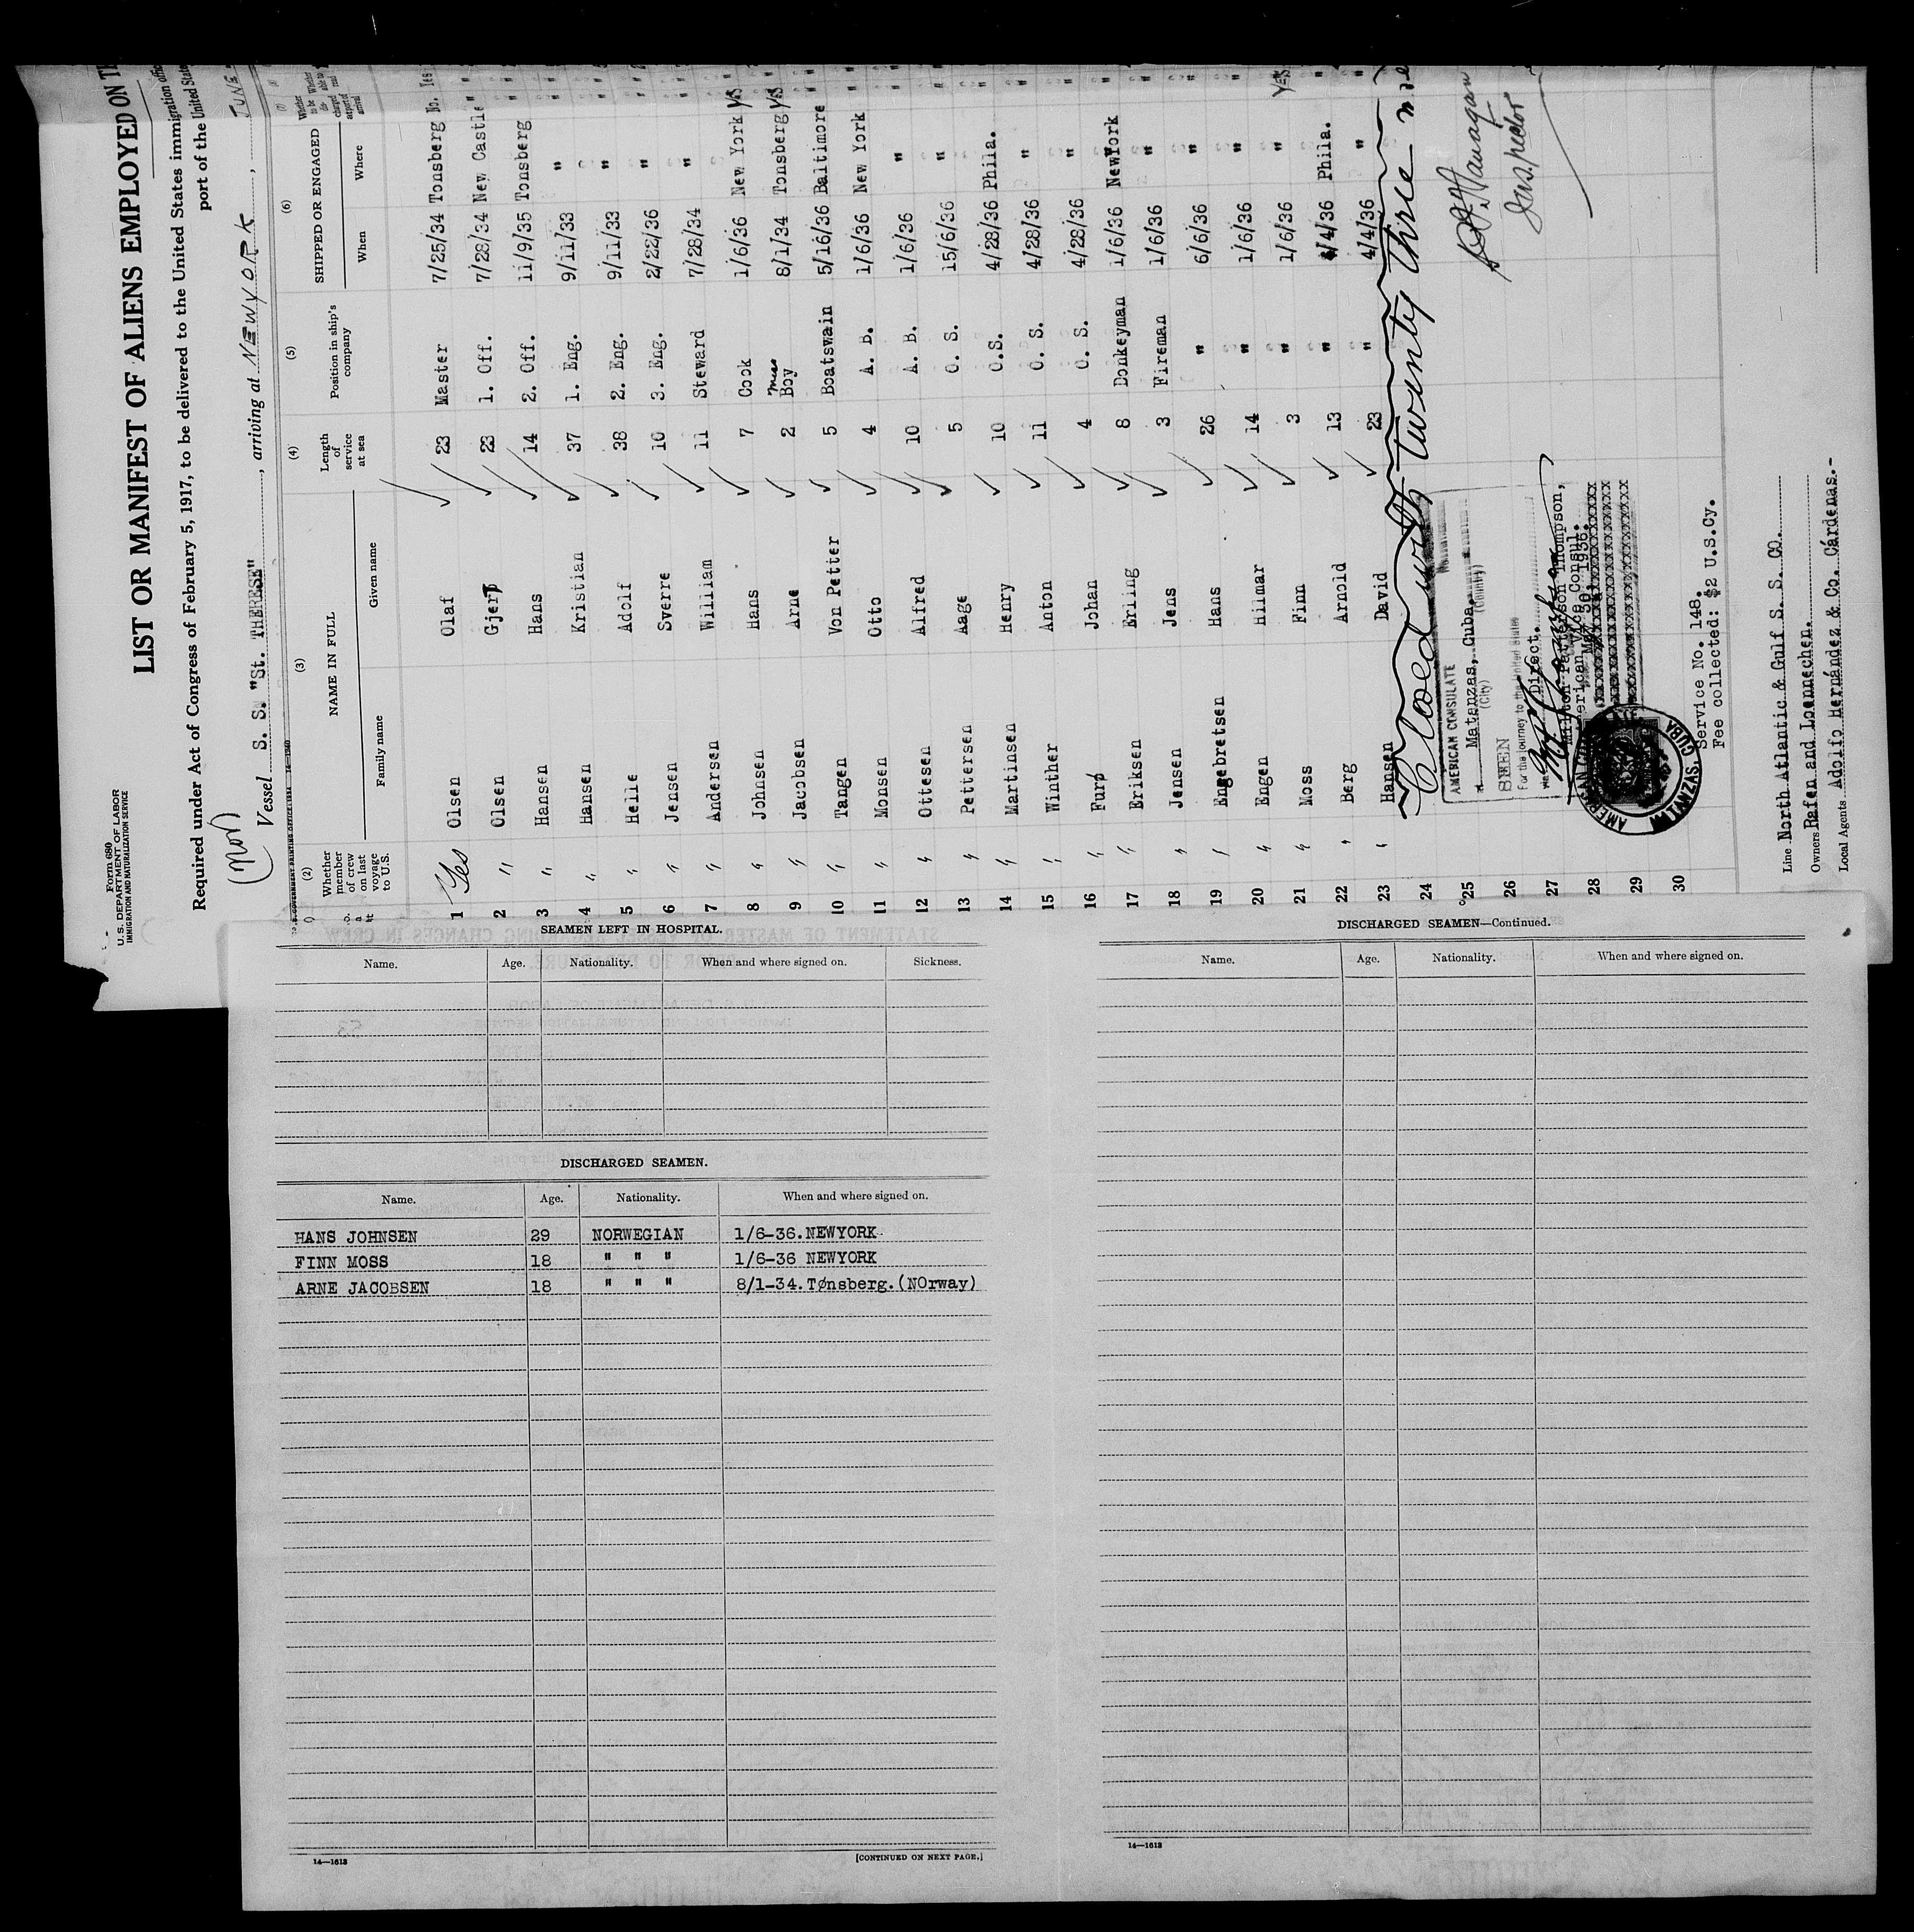 Form 680
U. S. DEPARTMENT OF LABOR
IMMIGRATION AND NATURALIZATION SERVICE
LIST OR MANIFEST OF ALIENS EMPLOYED ON
Required under Act of Congress of February 5, 1917, to be delivered to the United States immigration
port of the United
(Nor)
Vessel S. S. "St. THERESE", arriving at NEWYORK, JUNE
U.S. GOVERNMENT PRINTING OFFICE
(2) (3) (4) (5) (6)
Whether member of crew on last voyage to U.S. NAME IN FULL Length of service at sea Position in ship's company SHIPPED OR ENGAGED
Family name Given name When Where
1 Yes Olsen Olaf 23 Master 7/25/34 Tonsberg No. Yes
2 " Olsen Gjerp 23 1. Off. 7/28/34 New Castle "
3 " Hansen Hans 14 2. Off. 11/9/35 Tonsberg " "
4 " Hansen Kristian 37 1. Eng. 9/11/33 " " "
5 " Helle Adolf 38 2. Eng. 9/11/33 " " "
6 " Jensen Sverre 10 3. Eng. 2/22/36 " " "
7 " Andersen William 11 Steward 7/28/34 " " "
8 " Johnsen Hans 7 Cook 1/6/36 New York Yes "
9 " Jacobsen Arne 2 Mess Boy 8/1/34 Tonsberg Yes "
10 " Tangen Von Petter 5 Boatswain 5/16/36 Baltimore " "
11 " Monsen Otto 4 A. B. 1/6/36 New York " "
12 " Ottesen Alfred 10 A. B. 1/6/36 " " "
13 " Pettersen Aage 5 O. S. 15/6/36 " " "
14 " Martinsen Henry 10 O.S. 4/28/36 Phila. " "
15 " Winther Anton 11 O. S. 4/28/36 " " "
16 " Furø Johan 4 O. S. 4/28/36 " " "
17 " Eriksen Erling 8 Donkeyman 1/6/36 NewYork " "
18 " Jensen Jens 3 Fireman 1/6/36 " " "
19 " Engebretsen Hans 26 " 6/6/36 " " "
20 " Engen Hilmar 14 " 1/6/36 " " "
21 " Moss Finn 3 " 1/6/36 " Yes "
22 " Berg Arnold 13 " 4/4/36 Phila. " "
23 " Hansen David 23 " 4/4/36 " " "
24 Closed with twenty three
25
26
27
28
29
30
Inspector
AMERICAN CONSULATE
at Matanzas, Cuba.
(City) (Country)
SEEN
For the journey to the United States
Direct.
Milton Patterson Thompson,
American Vice Consul.
May 30, 1936.
AMERICAN
MATANZAS, CUBA
Service No. 148.
Fee collected: $2 U.S.Cy.
Line North Atlantic & Gulf S. S. CO.
Owners Rafen and Loennechen.
Local Agents Adolfo Hernández & Co. Cárdenas.-
SEAMEN LEFT IN HOSPITAL.
Name. Age. Nationality. When and where signed on. Sickness.
DISCHARGED SEAMEN.
Name. Age. Nationality. When and where signed on.
HANS JOHNSEN 29 NORWEGIAN 1/6-36. NEWYORK
FINN MOSS 18 " " " 1/6-36 NEWYORK
ARNE JACOBSEN 18 " " " 8/1-34. Tønsberg. (NOrway)
14—1613
[CONTINUED ON NEXT PAGE.]
DISCHARGED SEAMEN—Continued.
Name. Age. Nationality. When and where signed on.
14—1613